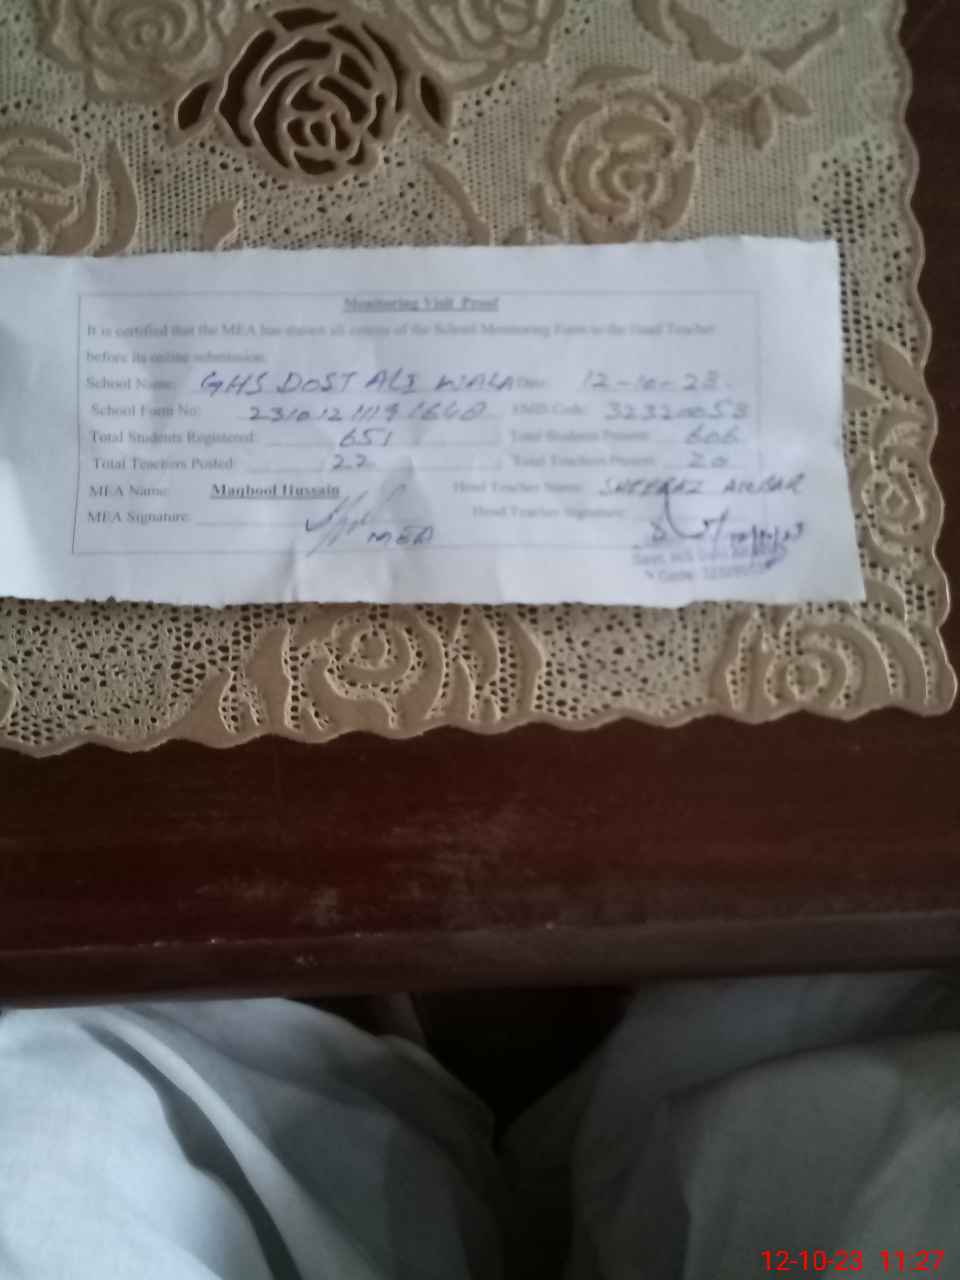 Monitoring Visit Proof
It is certified that the MEA has shown all entries of the School Monitoring Form to the Head Teacher
before its online submission.
School Name: GHS DOST ALI WALA Date: 12-10-23
School Form No: EMIS Code: 32320053
Total Students Registered: 651 Total Students Present: 606
Total Teachers Posted: 22 Total Teachers Present: 20
MEA Name: Maqbool Hussain Head Teacher Name: AKBAR
MEA Signature: MEA Head Teacher Signature:
12-10-23 11:27